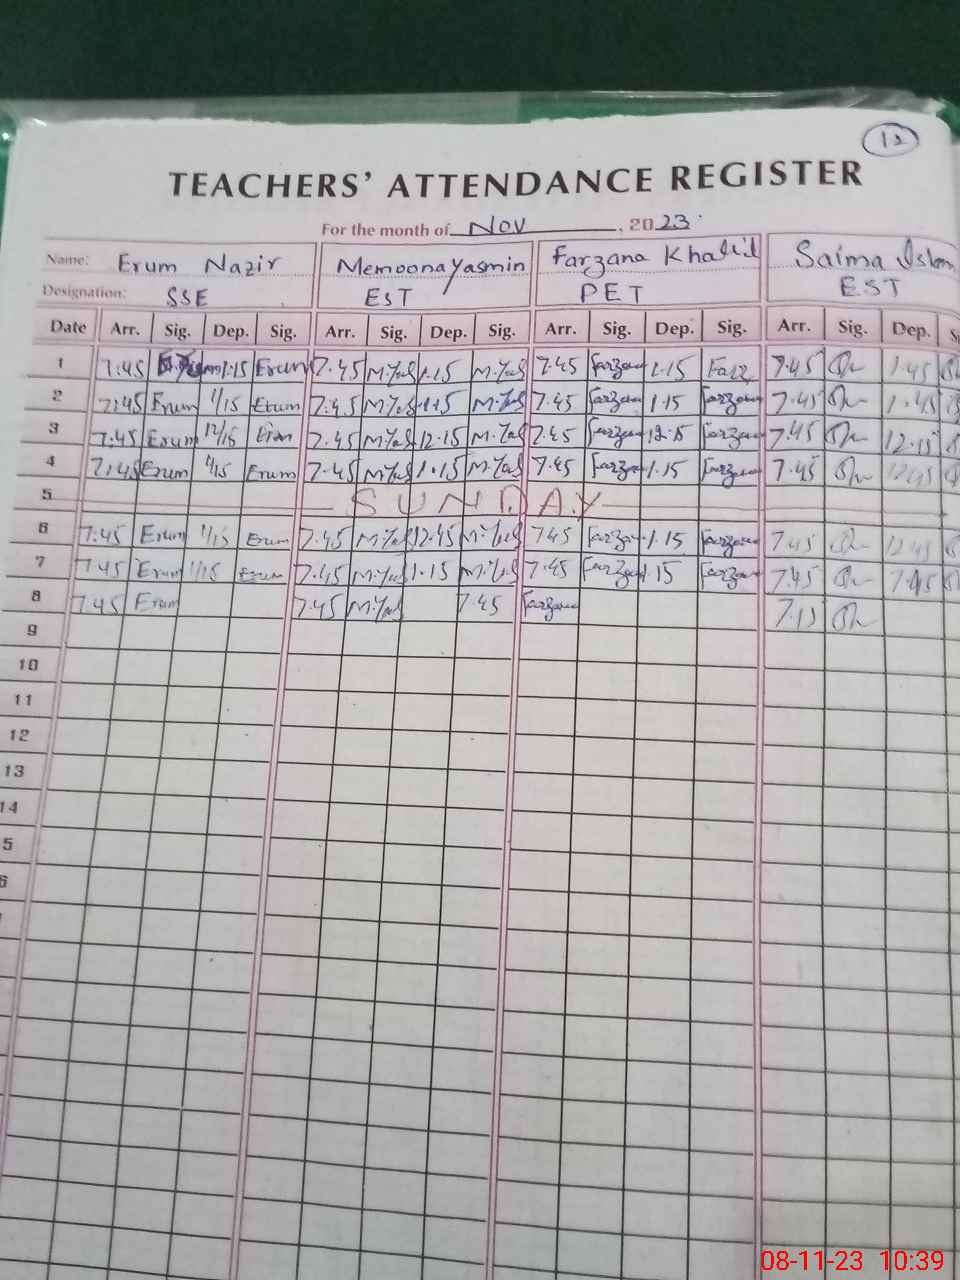 12
TEACHERS' ATTENDANCE REGISTER
For the month of Nov, 2023
Name: Erum Nazir Memoona Yasmin Farzana Khalid Saima Islam
Designation: SSE EST PET EST
Date Arr. Sig. Dep. Sig. Arr. Sig. Dep. Sig. Arr. Sig. Dep. Sig. Arr. Sig. Dep.
1 7:45 1.15 Erum 7.45 M.Yas 1.15 M.Yas 7.45 Farzana 1.15 Farz 7.45 1.45
2 7:45 Erum 1/15 Erum 7.45 M.Yas 1.15 M.Yas 7.45 Farzana 1.15 Farzana 7.45 1.45
3 7.45 Erum 12/15 Erum 7.45 M.Yas 12.15 M.Yas 7.45 Farzana 12.15 Farzana 7.45 12.15
4 7:45 Erum 1/15 Erum 7.45 M.Yas 1.15 M.Yas 7.45 Farzana 1.15 Farzana 7.45 12.45
5 SUNDAY
6 7.45 Erum 1/15 Erum 7.45 M.Yas 12.45 M.Yas 7.45 Farzana 1.15 Farzana 7.45 12.45
7 7.45 Erum 1/15 Erum 7.45 M.Yas 1.15 M.Yas 7.45 Farzana 1.15 Farzana 7.45 7.45
8 7.45 Erum 7.45 M.Yas 7.45 Farzana 7.15
9
10
11
12
13
14
5
6
08-11-23 10:39